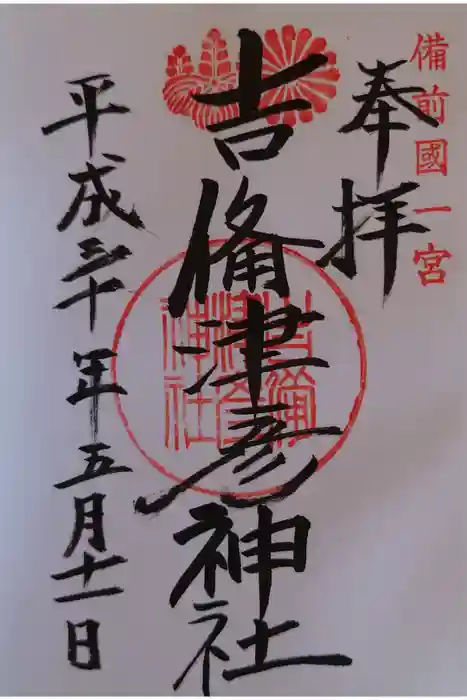 備前國一宮
奉拝
吉備津彦神社
吉備津彦神社
平成三十年五月十一日